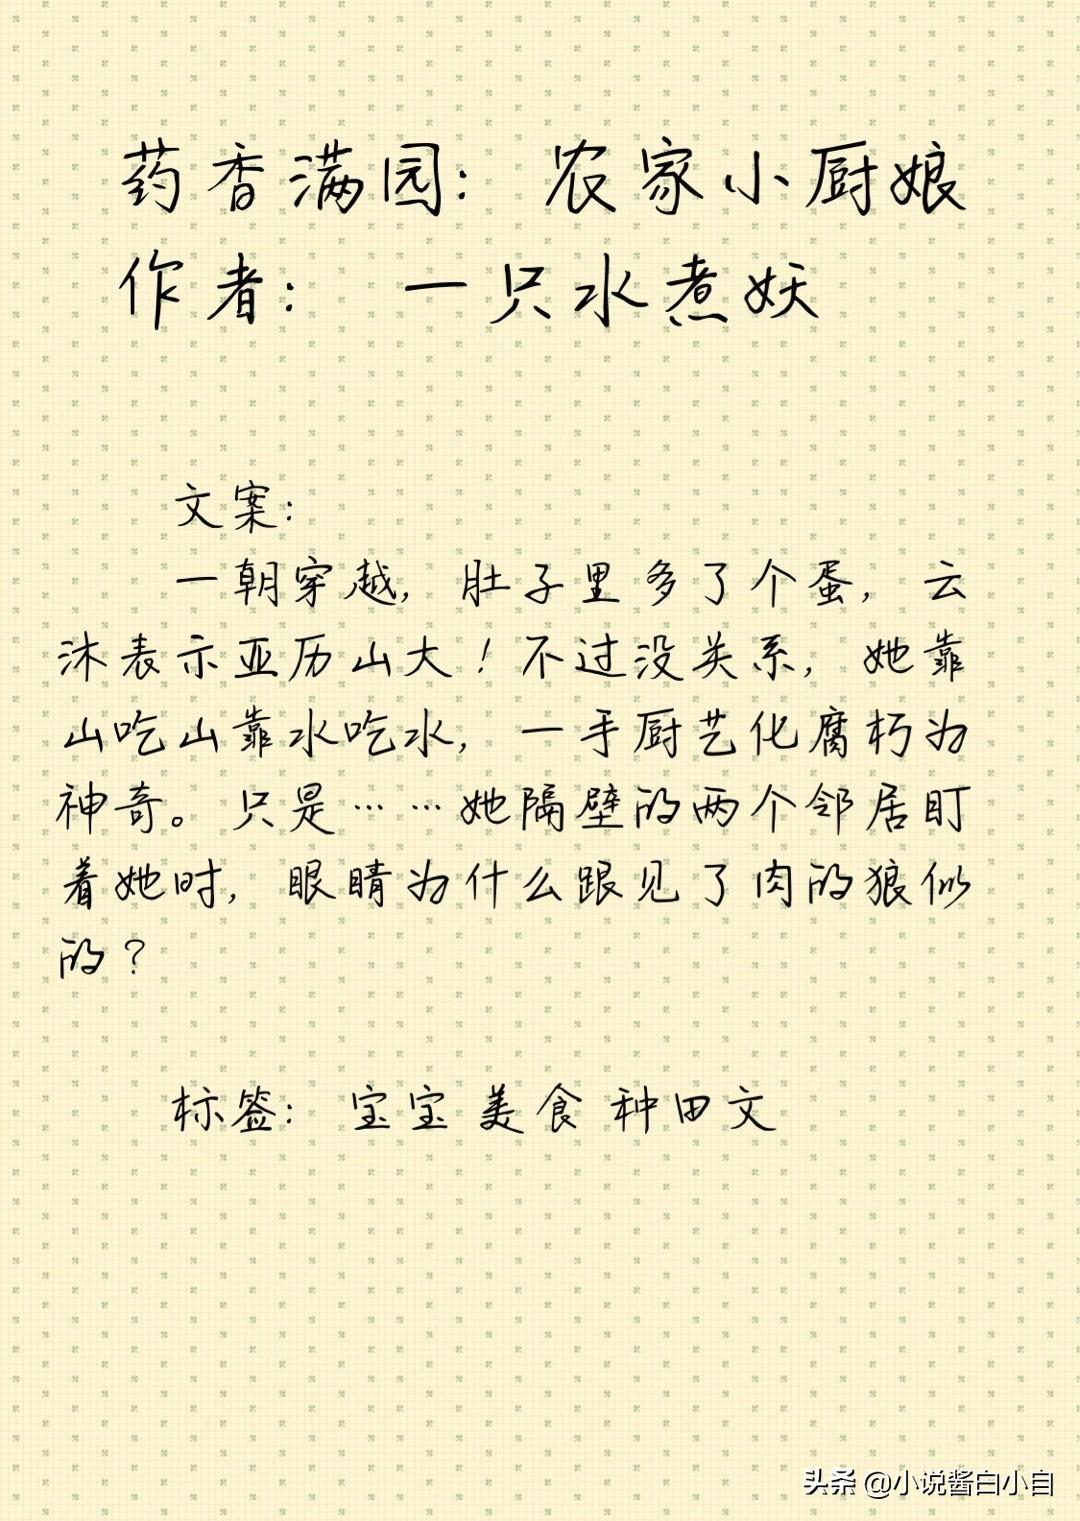 药香满园：农家小厨娘
作者：一只水煮妖
文案：
一朝穿越，肚子里多了个蛋，云
沐表示亚历山大！不过没关系，她靠
山吃山靠水吃水，一手厨艺化腐朽为
神奇。只是……她隔壁的两个邻居盯
着她时，眼睛为什么跟见了肉的狼似
的？
标签：宝宝 美食 种田文
头条 @小说酱白小白